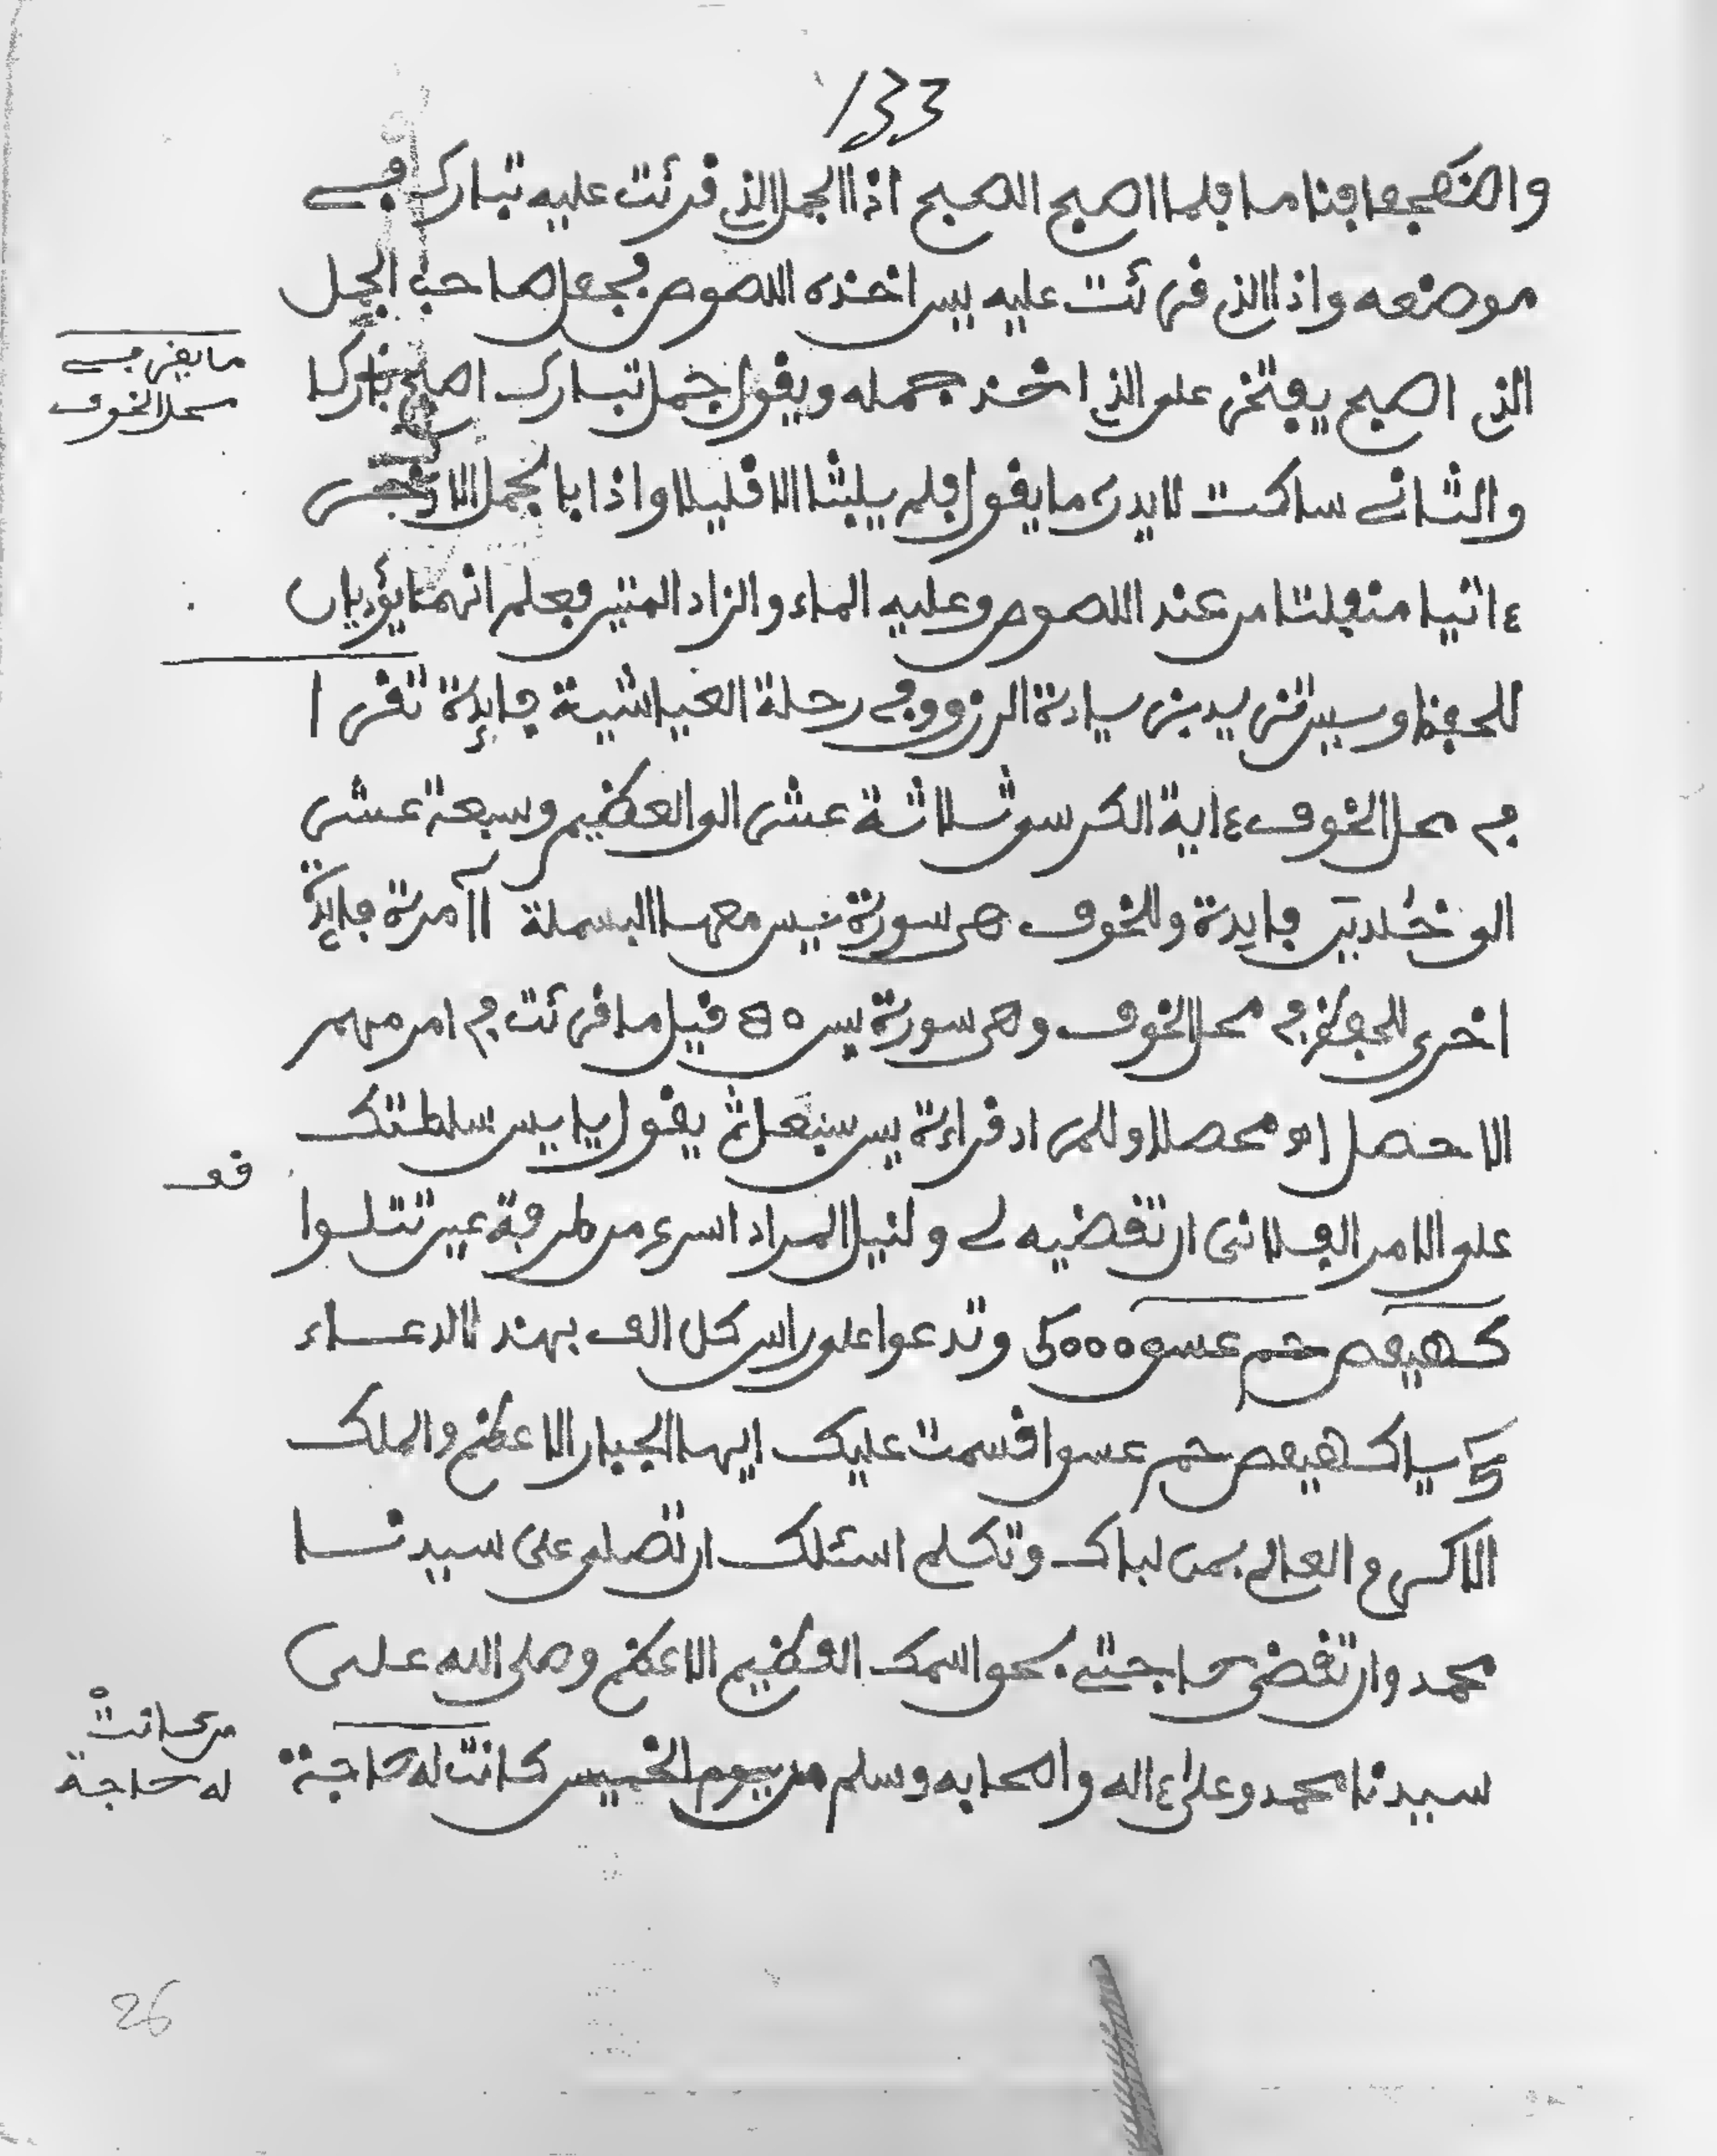 133
فناما فلما اصبح الصبح اذا الجمل الذي قرئت عليه تبارك في
موضعه واذا الذي قرئت عليه يس اخذه اللصوص فجعل صاحب الجمل
الذي اصبح يفتخر على الذي اخذ جمله ويقول جمل تبارك اصبح باركا
ما يقرا في
محل الخوف
والثاني ساكت لا يدري ما يقول فلم يلبثا الا قليلا واذا بالجمل الاخر
ءاتيا منفلتا من عند اللصوص وعليه الماء والزاد المتير فعلم انهما يؤديان
للحفظ وسيدي زيادة الرزق وفي رحلة العياشية فايدة تقرا
في محل الخوف ءاية الكرسي ثلاثة عشر الى العظيم وسبعة عشر
الى خلدين فايدة وللخوف هي سورة يس معها البسملة مرة فايدة
اخرى للحفظ في محل الخوف وهي سورة يس قيل ما قرئت في امر مهم
الا حصل او محصلا وللمراد قراءة يس سبعا ثم يقول يا يس سلطتك
قف
على الامر الفلاني ان تقضيه لي ولنيل المراد اسرع من طرفة عين تتلوا
كهيعص حم عسق 5000 وتدعوا على راس كل الف بهذ الدعاء
5 يا كهيعص حم عسق اقسمت عليك ايها الجبار الاعظم والملك
الاكرم العالي بمن لباك وتكلم اسئلك ان تصلي على سيدنا
محمد وان تقضي حاجتي بحق اسمك العظيم الاعظم وصلى الله على
سيدنا محمد وعلى ءاله واصحابه وسلم من يوم الخميس كانت له حاجة
من كانت
له حاجة
26